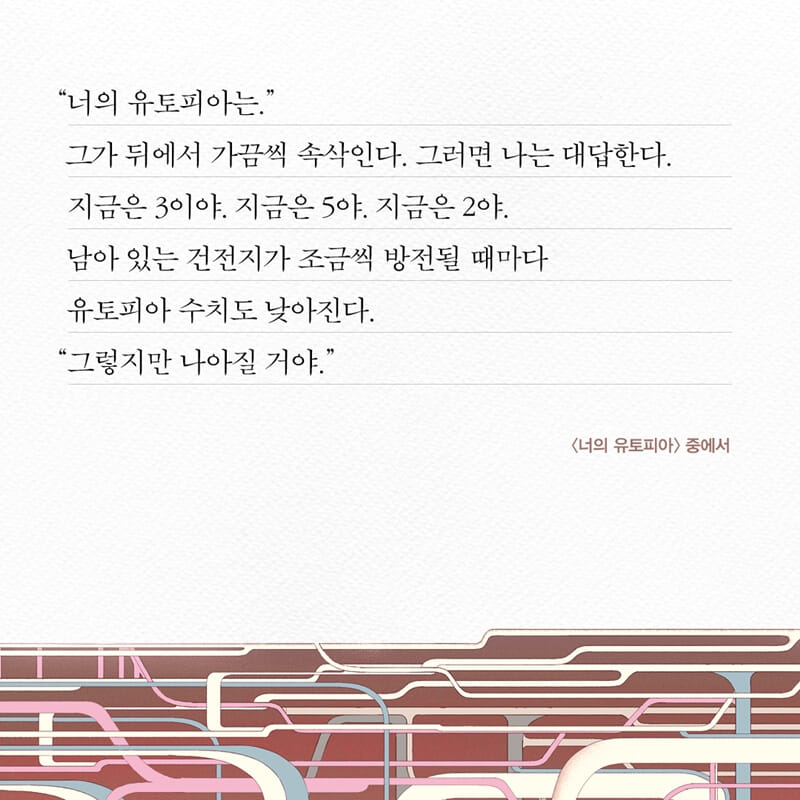 “너의 유토피아는.”
그가 뒤에서 가끔씩 속삭인다. 그러면 나는 대답한다.
지금은 3이야. 지금은 5야. 지금은 2야.
남아 있는 건전지가 조금씩 방전될 때마다
유토피아 수치도 낮아진다.
“그렇지만 나아질 거야.”
〈너의 유토피아〉 중에서